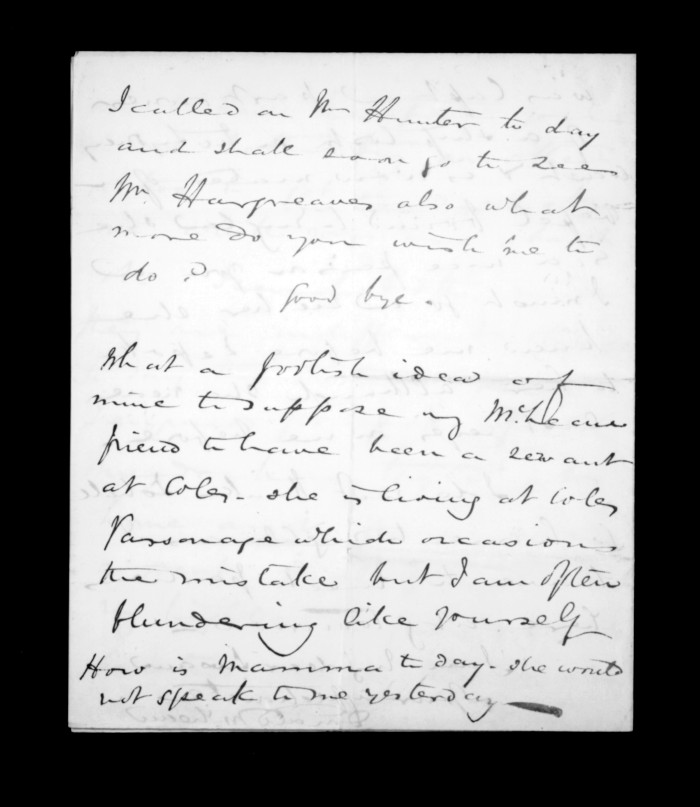 I called on Mr Hunter to day
and shall soon go to see
Mr. Hargreaves also what
more do you wish me to
do?
Good bye.
What a foolish idea of
mine to suppose my McLean
friend to have been a servant
at Coles - she is living at Coles
Parsonage which occasions
the mistake but I am often
blundering like yourself
How is Mamma to day - she would
not speak to me yesterday